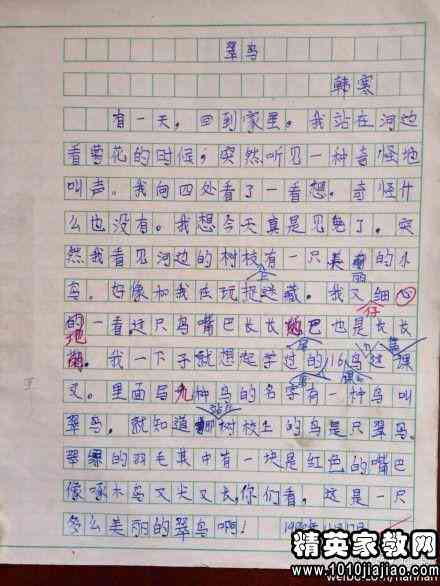 翠鸟
韩寒
有一天，回到家里。我站在河边
看菊花的时候，突然听见一种奇怪地
叫声。我向四处看了一看想。奇怪什
么也没有。我想今天真是见鬼了。突
然我看见河边的树枝有一只美丽的小
上
鸟。好像和我在玩捉迷藏。我又细
仔
的一看这只鸟嘴巴长长 巴也是长长
地
我一下子就想起学过的16鸟这课
文。里面写九种鸟的名字有一种鸟叫
站在
翠鸟。就知道那树枝上的鸟是只翠鸟。
翠绿的羽毛其中有一块是红色的嘴巴
像啄木鸟又尖又长，你们看，这是一只
多么美丽的翠鸟啊！
精英家教网
www.1010jiajiao.com